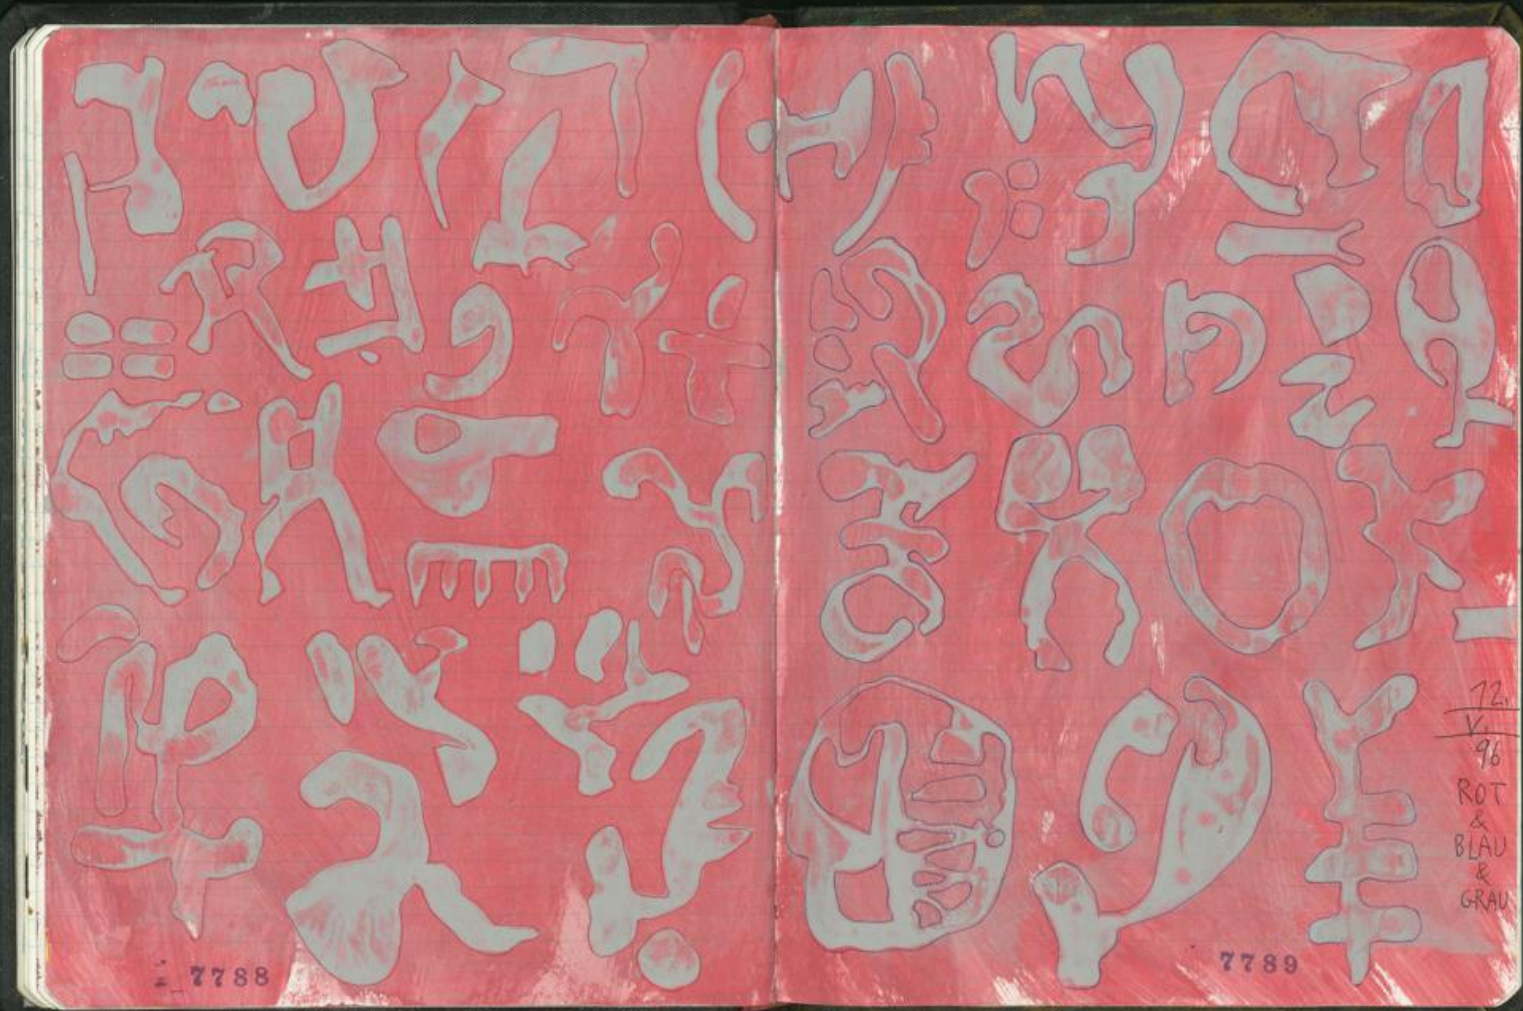 7788
7789
12.
V.
96
ROT
&
BLAU
&
GRAU